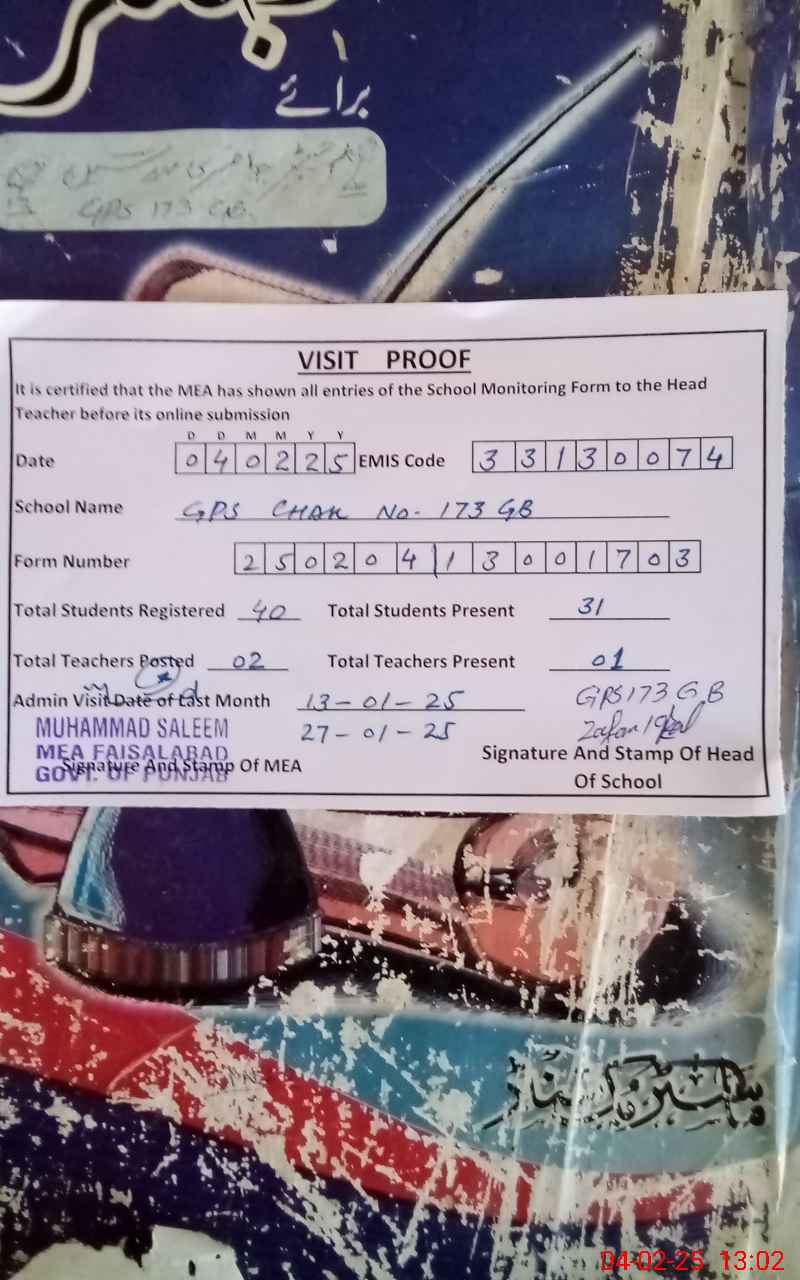 برائے
GPS 173 GB
VISIT PROOF
It is certified that the MEA has shown all entries of the School Monitoring Form to the Head
Teacher before its online submission
D D M M Y Y
Date 0 4 0 2 2 5 EMIS Code 3 3 1 3 0 0 7 4
School Name GPS CHAK No- 173 GB
Form Number 2 5 0 2 0 4 1 3 0 0 1 7 0 3
Total Students Registered 40 Total Students Present 31
Total Teachers Posted 02 Total Teachers Present 01
Admin Visit Date of Last Month 13-01-25 GPS 173 G.B
MUHAMMAD SALEEM 27-01-25 Zafar Iqbal
MEA FAISALABAD
GOVT. OF PUNJAB
Signature And Stamp Of MEA
Signature And Stamp Of Head
Of School
04-02-25 13:02